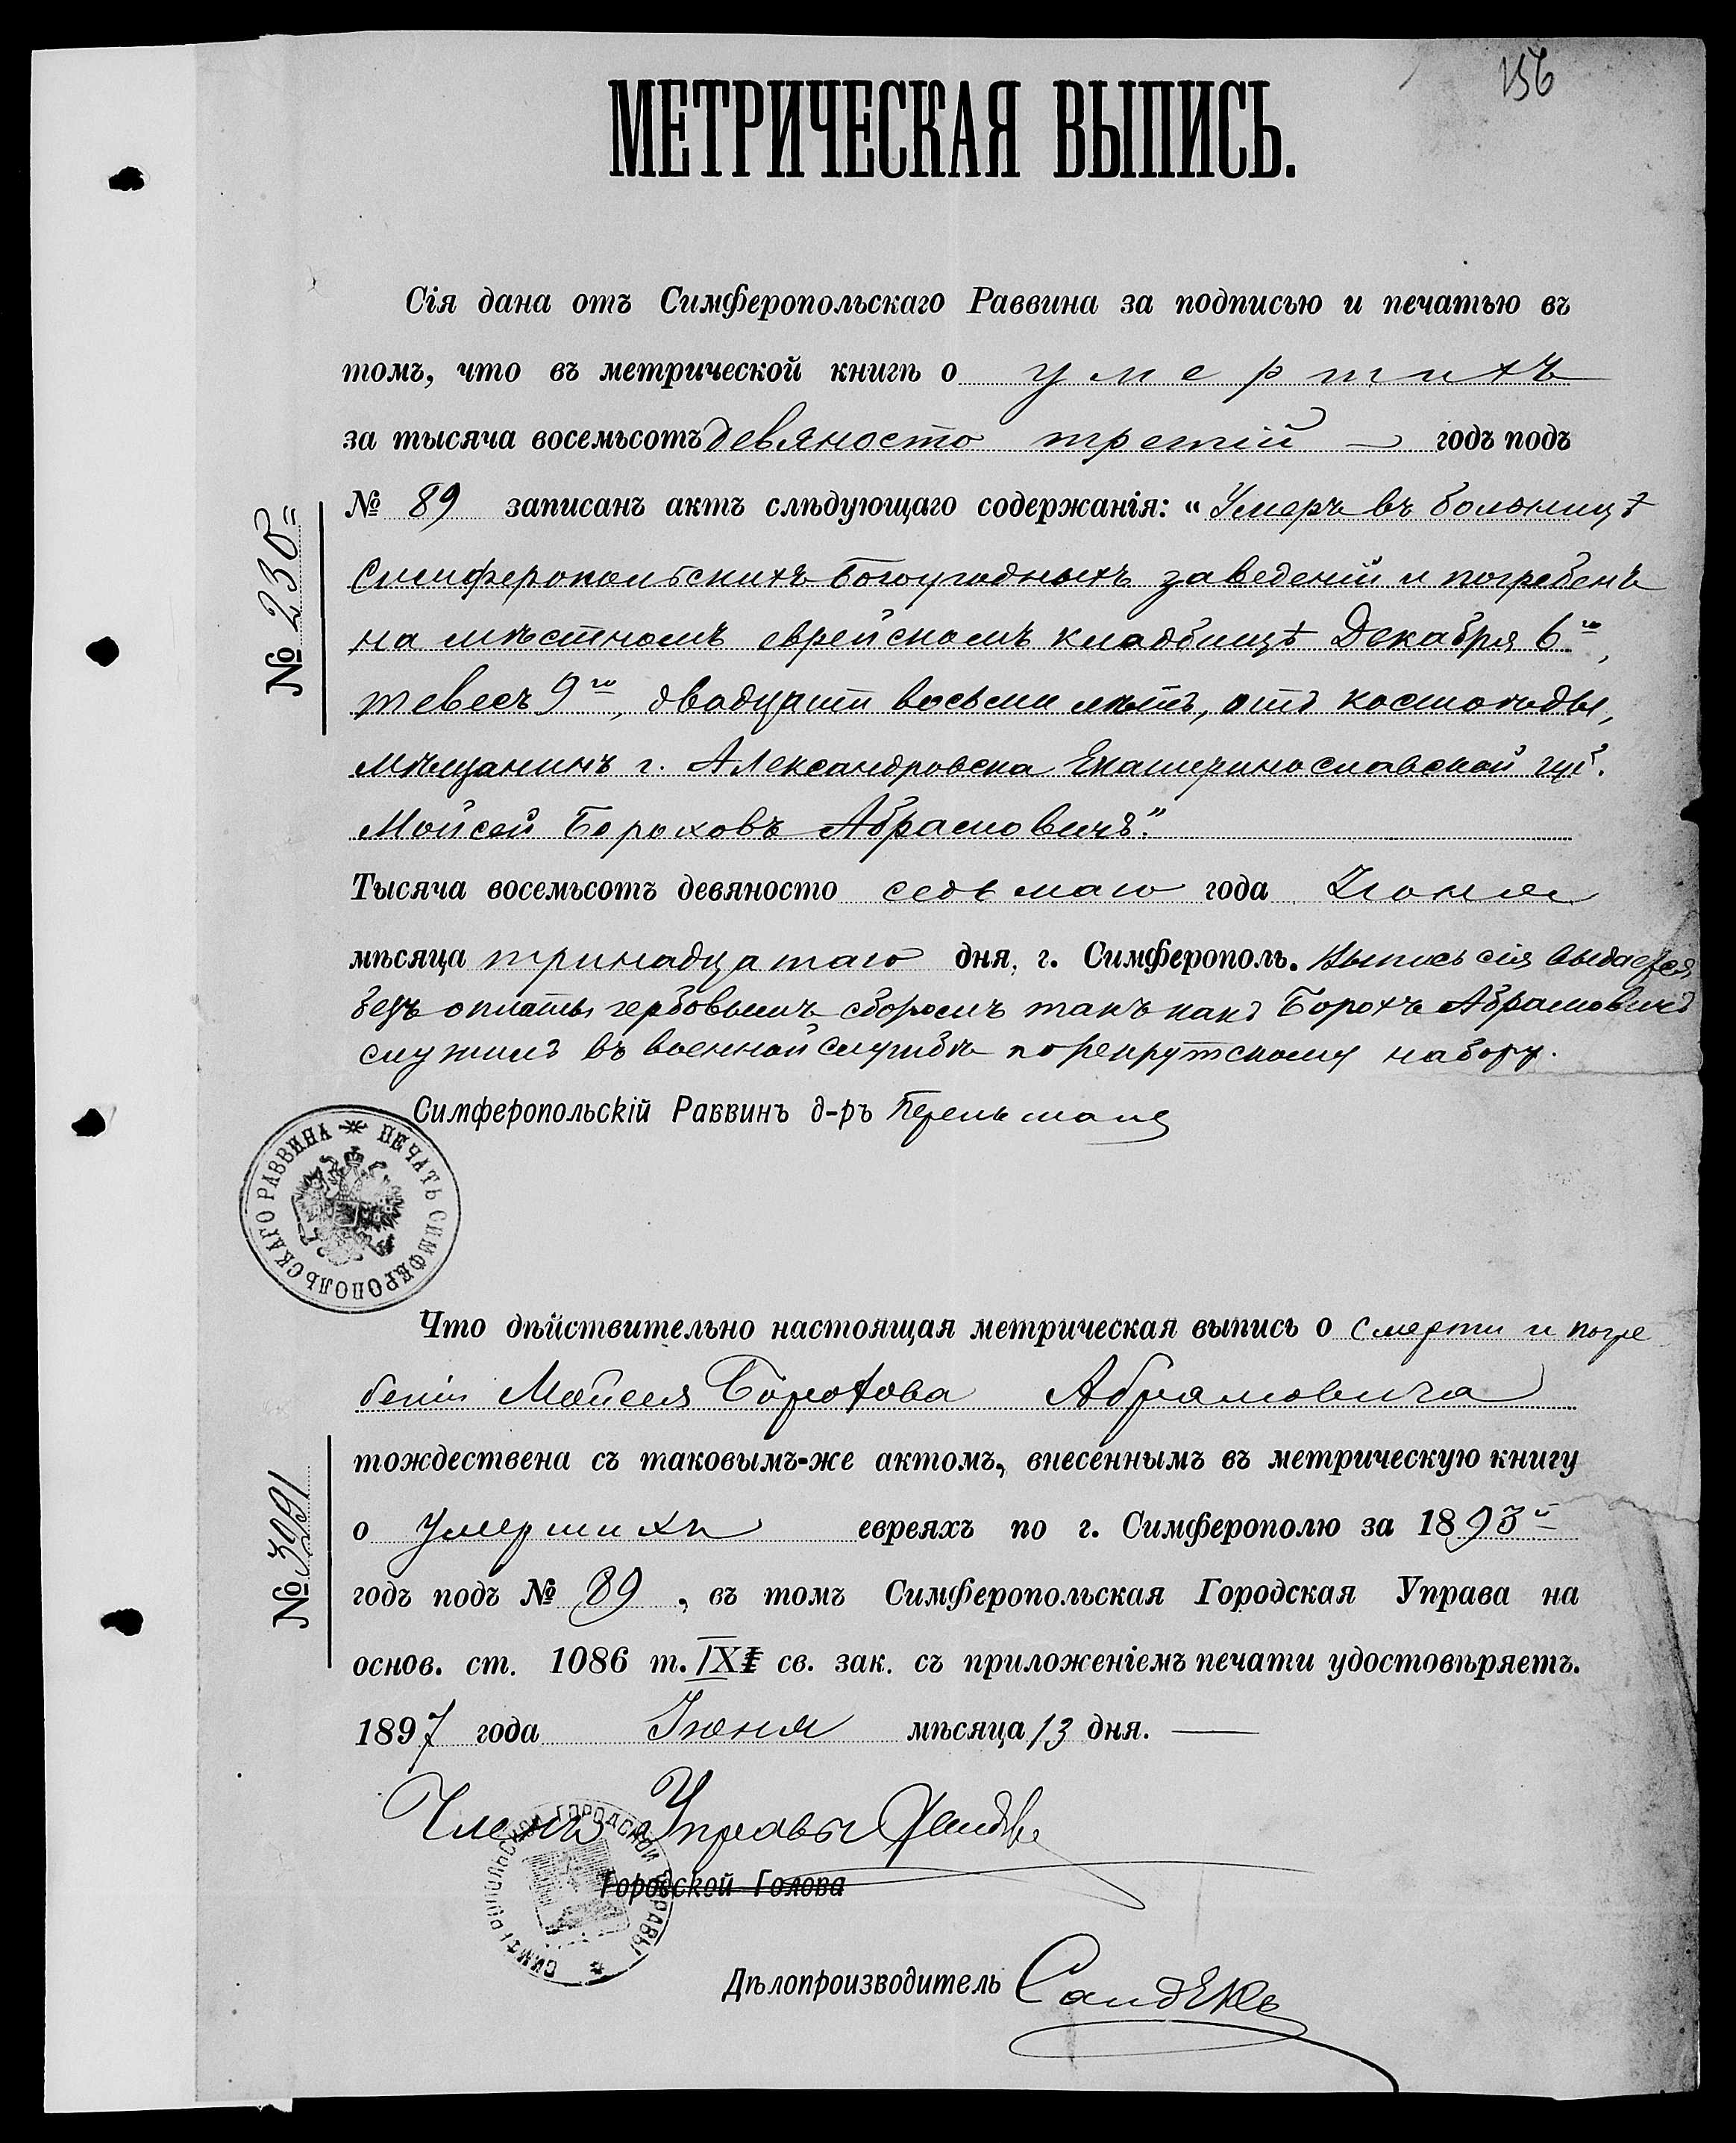 156
МЕТРИЧЕСКАЯ ВЫПИСЬ.
Сія дана отъ Симферопольскаго Раввина за подписью и печатью въ
томъ, что въ метрической книгѣ о умершихъ
за тысяча восемьсотъ девяносто третій годъ подъ
№ 89 записанъ актъ слѣдующаго содержанія: „Умеръ въ больницѣ
Симферопольскихъ Богоугодныхъ заведеній и погребенъ
на мѣстномъ еврейскомъ кладбищѣ Декабря 6го,
тевесъ 9го, двадцати восьми лѣтъ, отъ костоѣды,
мѣщанинъ г. Александровска Екатеринославской губ.
Мойсей Бороховъ Абрамовичъ."
№ 230
Тысяча восемьсотъ девяносто седьмаго года Июня
мѣсяца тринадцатаго дня, г. Симферополь. Выпись сія выдается
безъ оплаты гербовымъ сборомъ такъ какъ Борохъ Абрамовичъ
служилъ въ военной службѣ по рекрутскому набору.
Симферопольскій Раввинъ д-ръ Перельманъ
ПЕЧАТЬ СИМФЕРОПОЛЬСКАГО РАВВИНА
Что дѣйствительно настоящая метрическая выпись о смерти и погре-
беніи Мойсея Борохова Абрамовича
тождествена съ таковымъ-же актомъ, внесеннымъ въ метрическую книгу
о умершихъ евреяхъ по г. Симферополю за 1893й
годъ подъ № 89, въ томъ Симферопольская Городская Управа на
основ. ст. 1086 т. IX св. зак. съ приложеніемъ печати удостовѣряетъ.
№ 3991
1897 года Июня мѣсяца 13 дня.
Членъ Управы
Городской Голова
СИМФЕРОПОЛЬСКОЙ ГОРОДСКОЙ УПРАВЫ
Дѣлопроизводитель